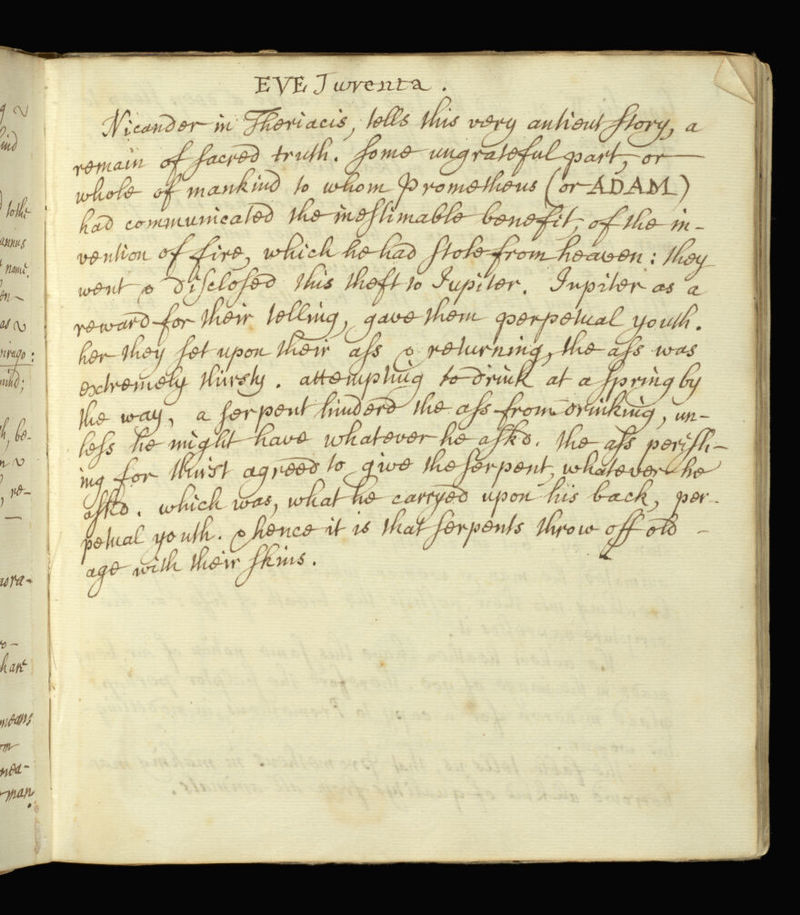 EVE Juventa.
Nicander in Theriacis, tells this very antient story, a
remain of sacred truth. some ungrateful part, or
whole of mankind to whom Prometheus (or ADAM)
had communicated the inestimable benefit, of the in-
vention of fire, which he had stole from heaven: they
went & disclosed this theft to Jupiter. Jupiter as a
reward for their telling, gave them perpetual youth.
her they set upon their ass & returning, the ass was
extremely thirsty. attempting to drink at a spring by
the way, a serpent hinderd the ass from drinking, un-
less he might have whatever he askd. the ass perish-
ing for thirst agreed to give the serpent, whatever he
askd. which was, what he carryed upon his back, per-
petual youth. & hence it is that serpents throw off old
age with their skins.